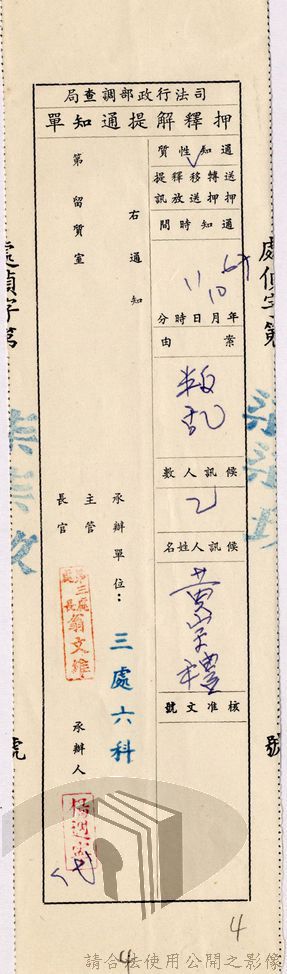 司法行政部調查局
押釋解提通知單
通知性質
送押
轉押
移送
釋放
提訊
✓
通知時間
64
10
11
年月日時分
案由
叛亂
候訊人數
乙
候訊人姓名
核准文號
右通知
第留質室
承辦單位：
三處六科
主管
長官
第三處
處長
翁文維
承辦人
代
處偵字第
號
處偵字第
號
4
4
請合法使用公開之影像